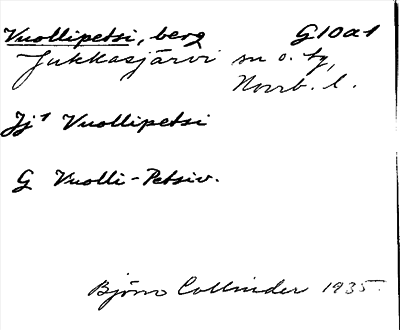 Vuollipetsi, berg G10a1
Jukkasjärvi sn o. tg,
Norrb. l.
Jj1 Vuollipetsi
G Vuolli-Petsiv.
Björn Collinder 1935.